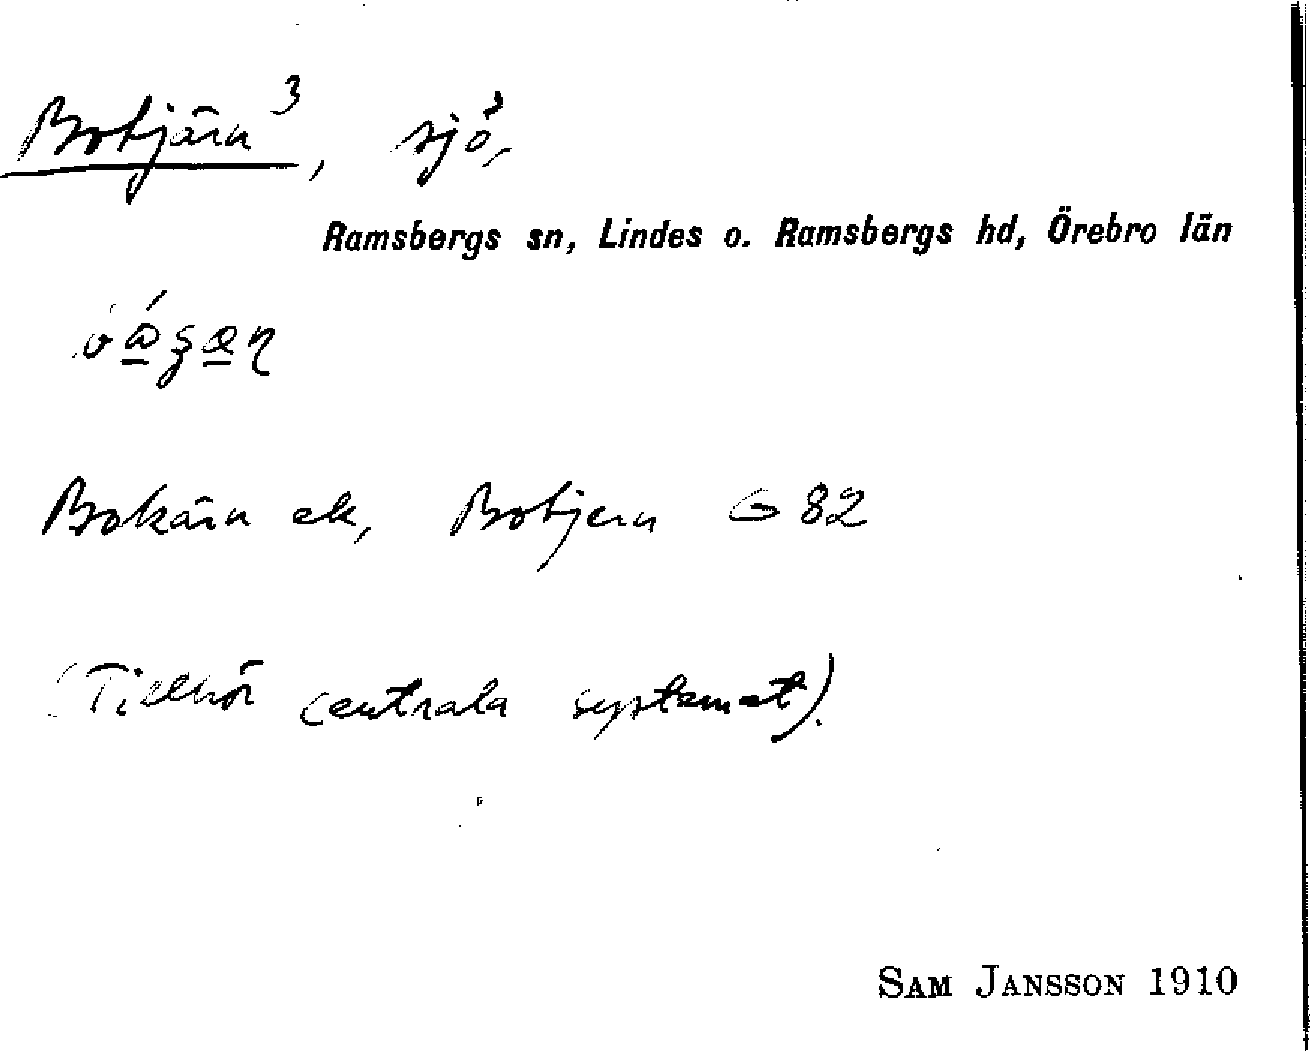 Botjärn³, sjö,
Ramsbergs sn, Lindes o. Ramsbergs hd, Örebro län
Bokärn ek, Botjern G 82
(Tillhör centrala systemet).
SAM JANSSON 1910